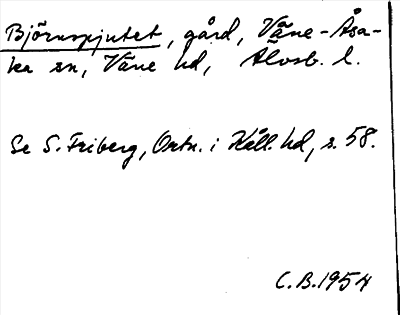 Björnspjutet, gård, Väne-Åsa-
ka sn, Väne hd, Älvsb. l.
Se S. Friberg, Ortn. i Kåll. hd, s. 58.
C.B. 1954